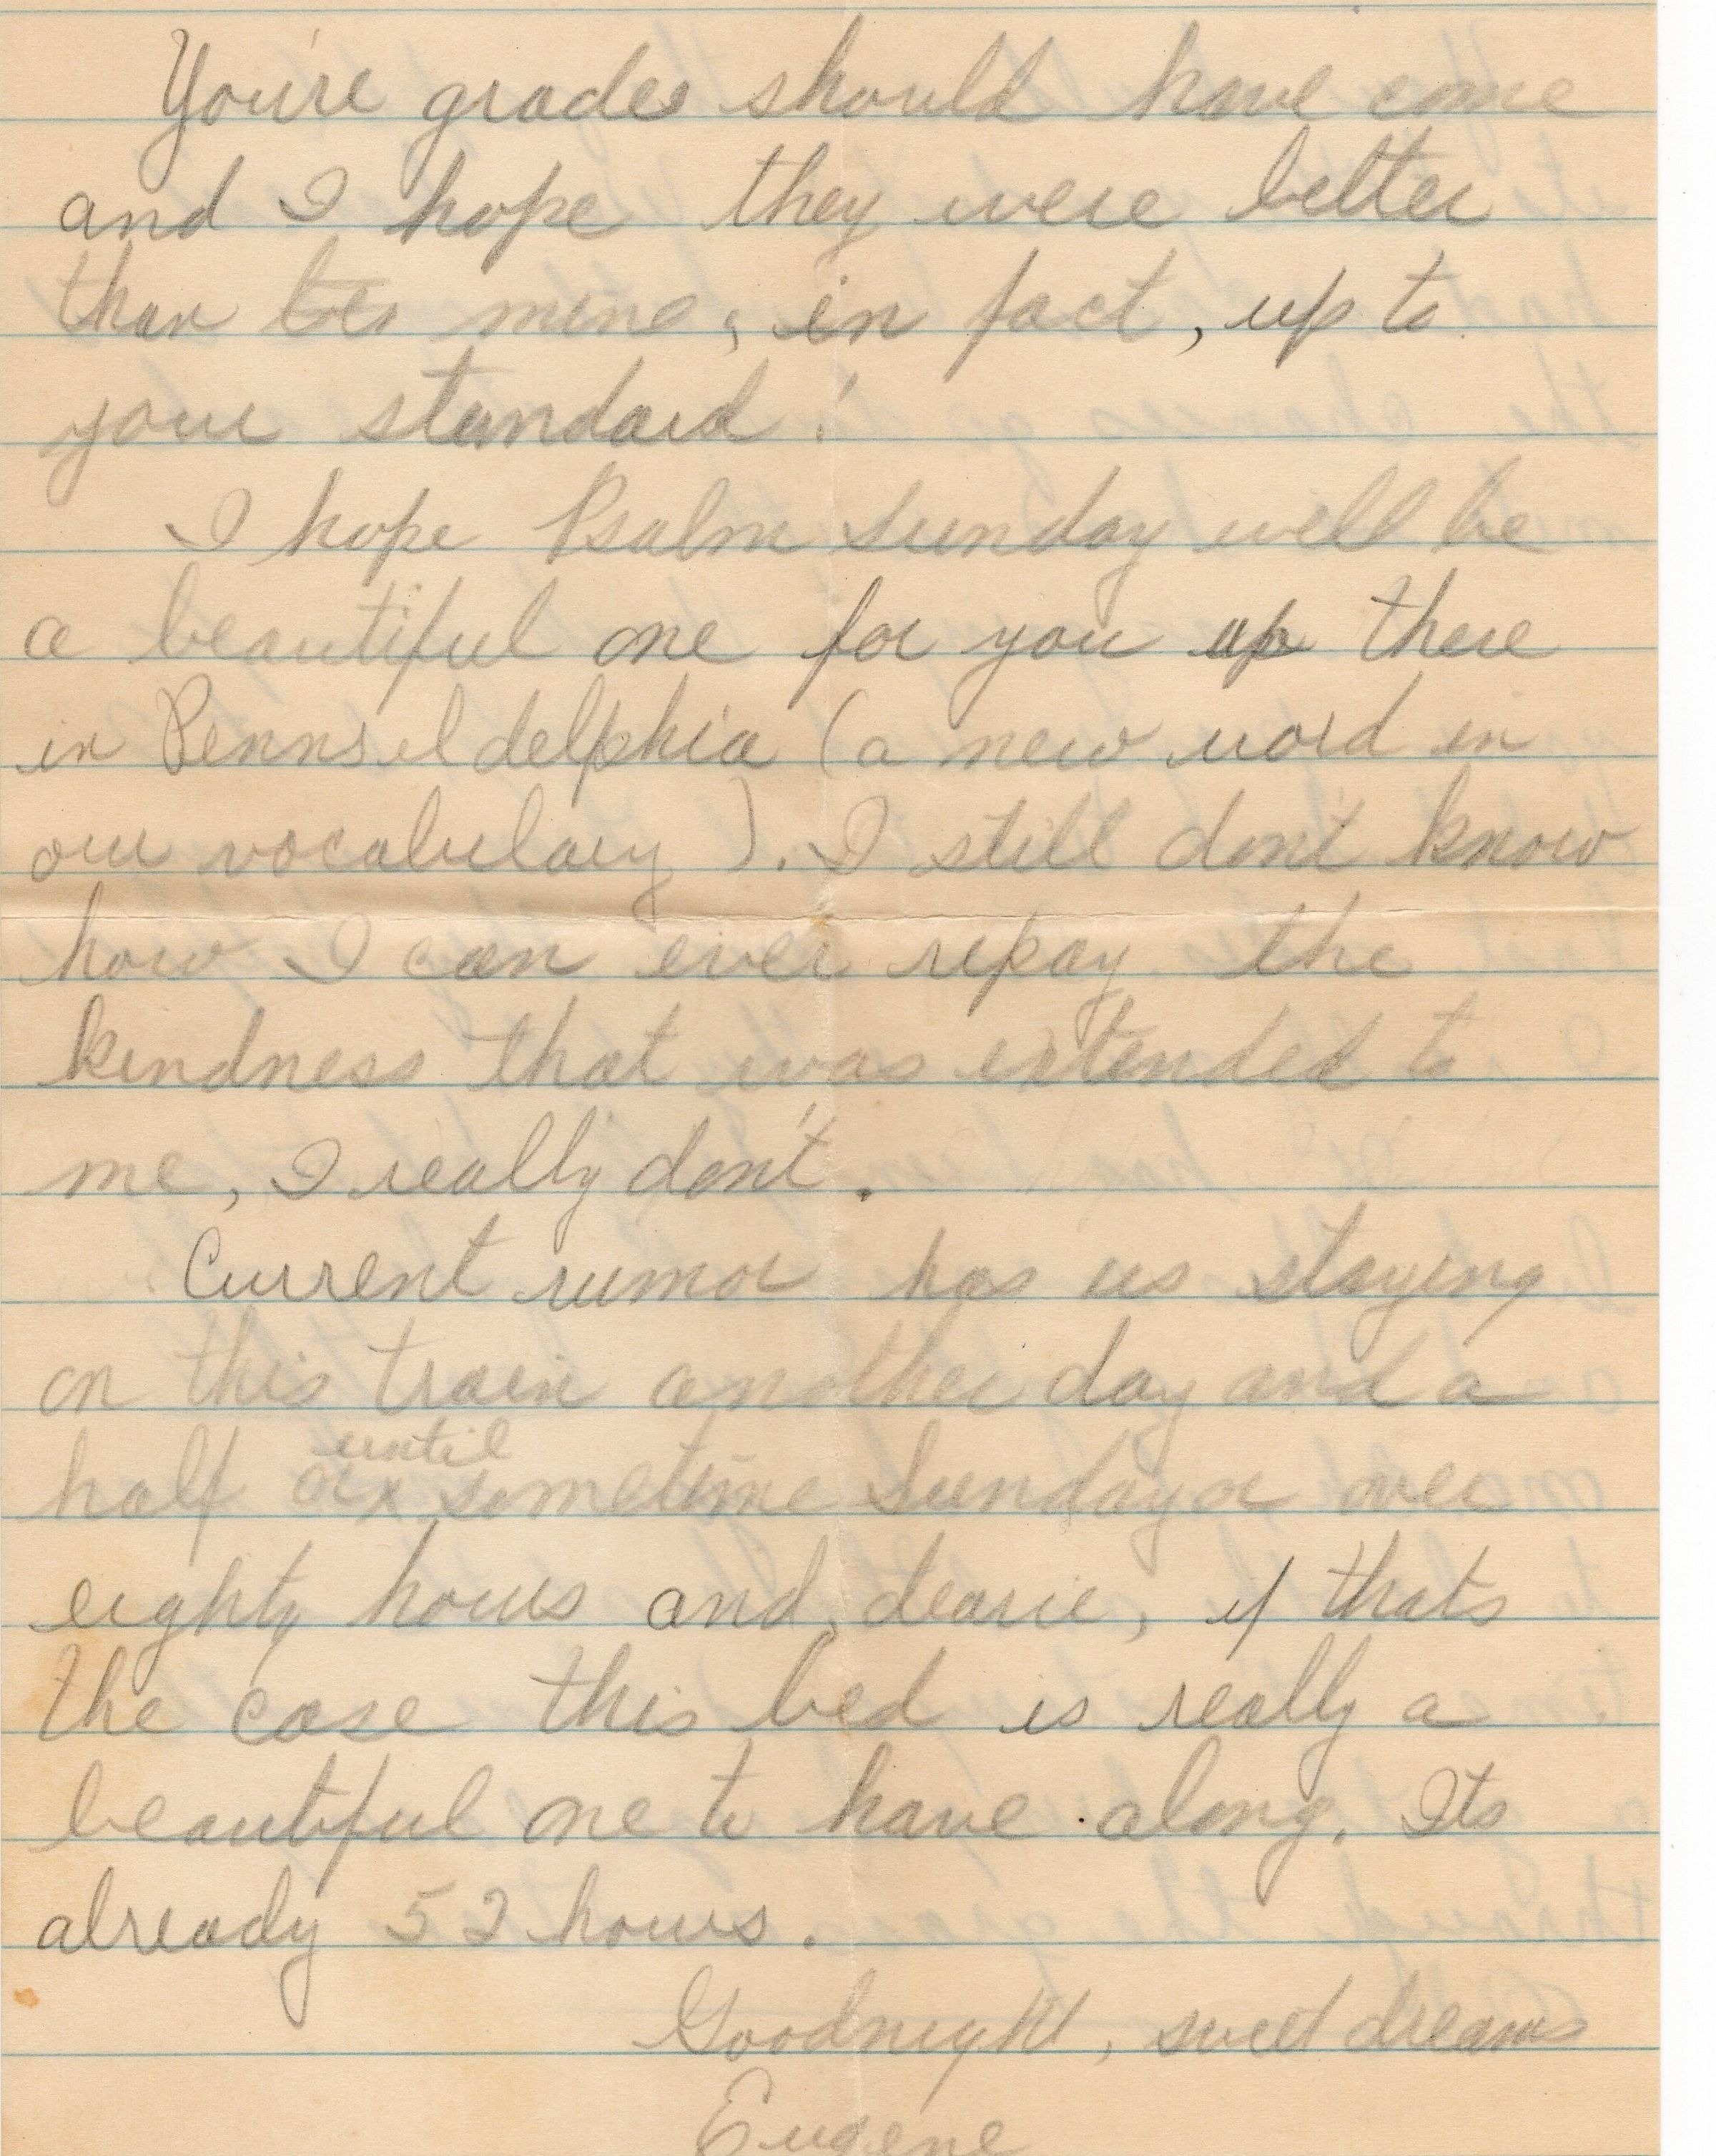 You're grades should have come
and I hope they were better
than mine, in fact, up to
your standard!
I hope Psalm Sunday will be
a beautiful one for you up there
in Pennsildelphia (a new word in
our vocabulary). I still don't know
how I can ever repay the
kindness that was extended to
me, I really don't.
Current rumor has us staying
on this train another day and a
half until sometime Sunday or over
eighty hours and, dearie, if thats
the case this bed is really a
beautiful one to have along. Its
already 52 hours.
Goodnight, sweet dreams
Eugene